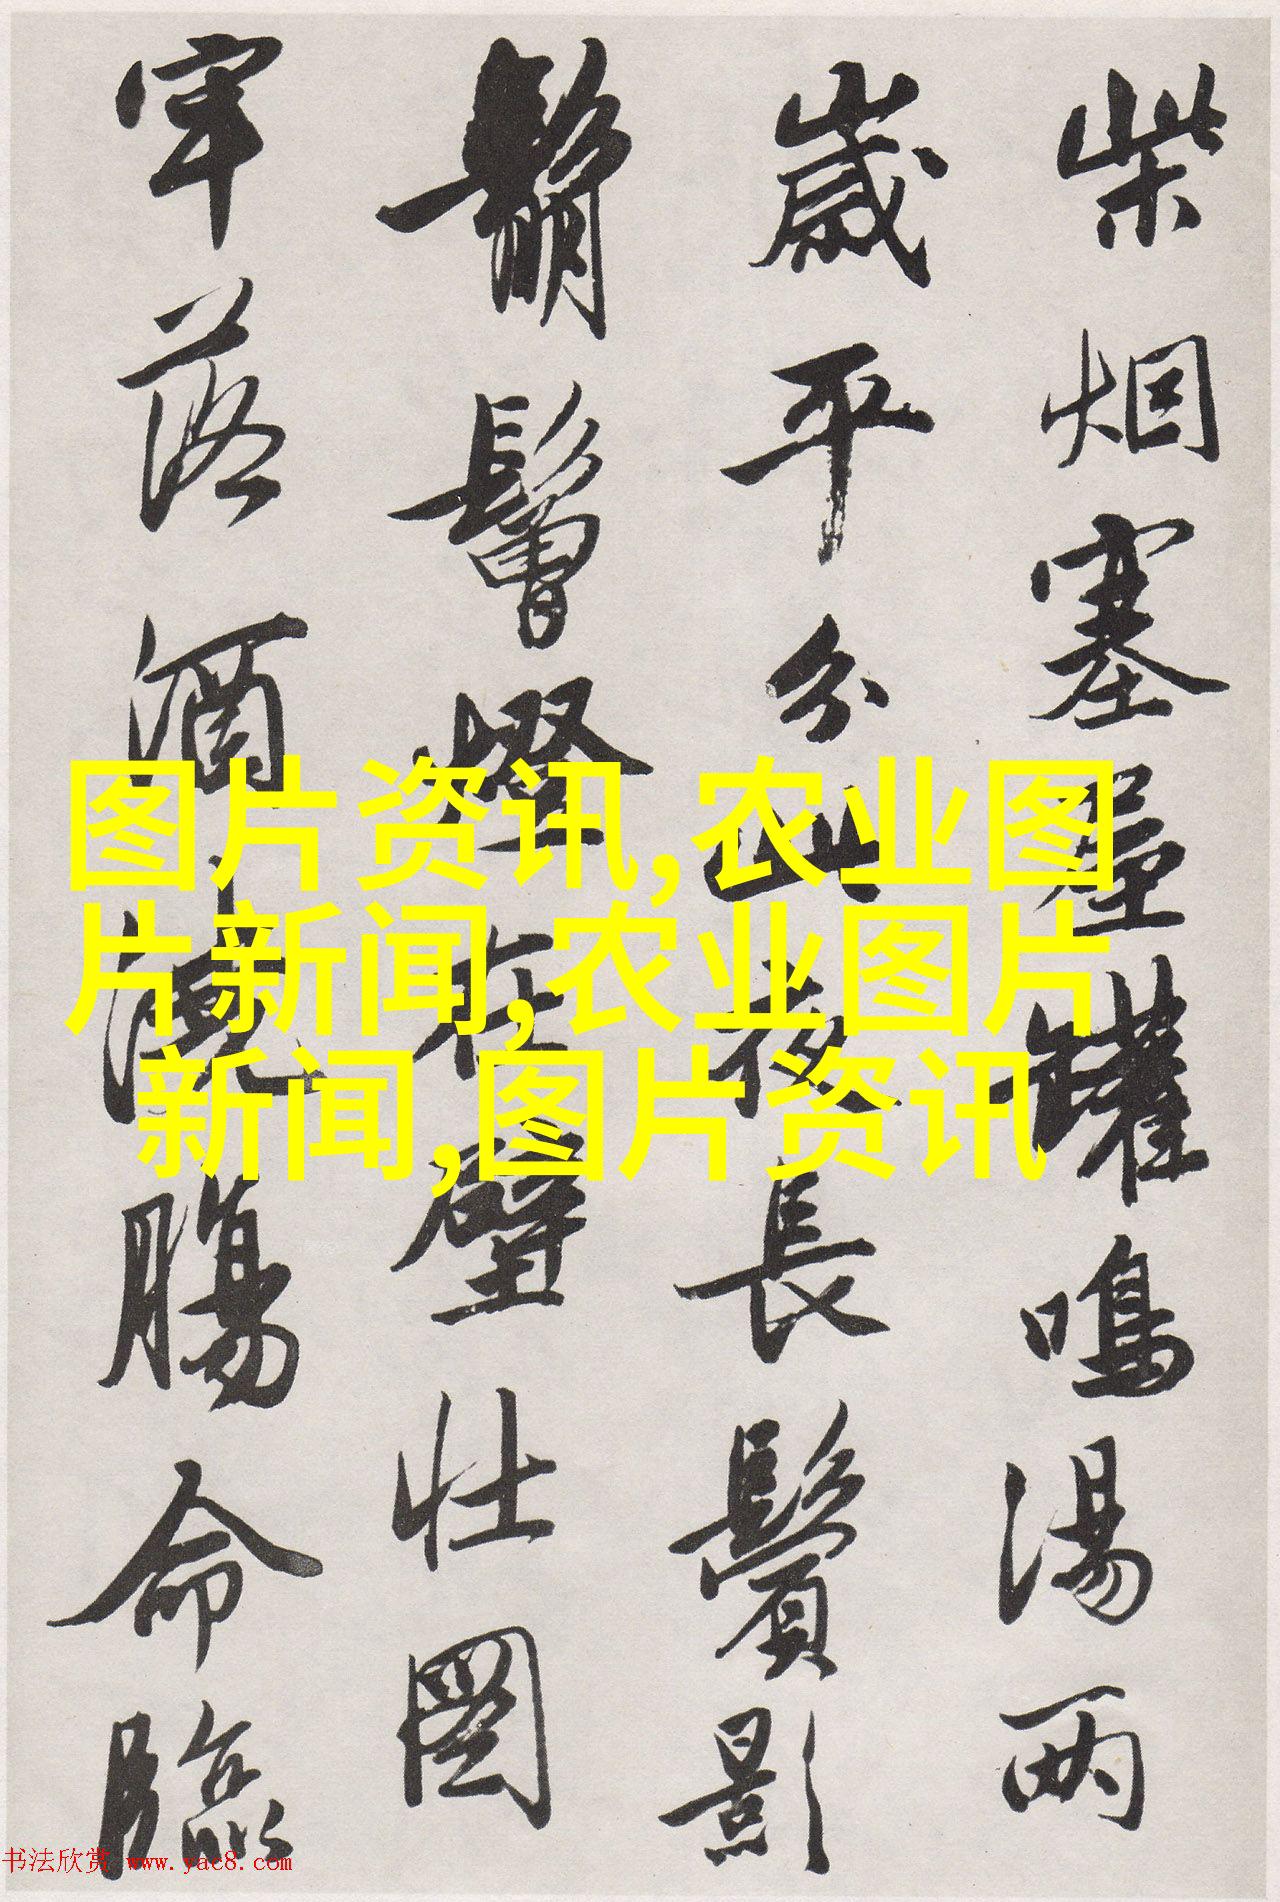 柴烟塞屋罐鳴湯兩
歲平分此夜長鬢影
鬅鬙燈在壁壯圖
牢落酒澆腸命臨
图片资讯,农业图
片新闻,农业图片
新闻,图片资讯
书法欣赏 www.yac8.com